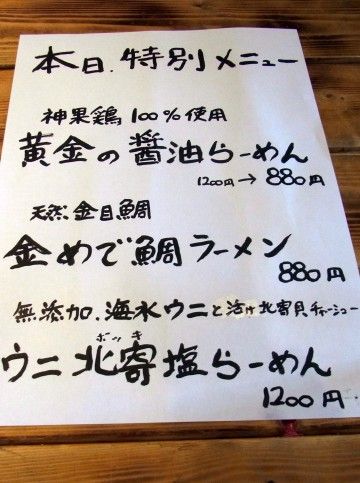 本日.特別メニュー
神果鶏100%使用
黄金の醤油らーめん
1200円→880円
天然金目鯛
金めで鯛ラーメン
880円
無添加.海水ウニと活け北寄貝チャーシュー
ホッキ
ウニ北寄塩らーめん
1200円